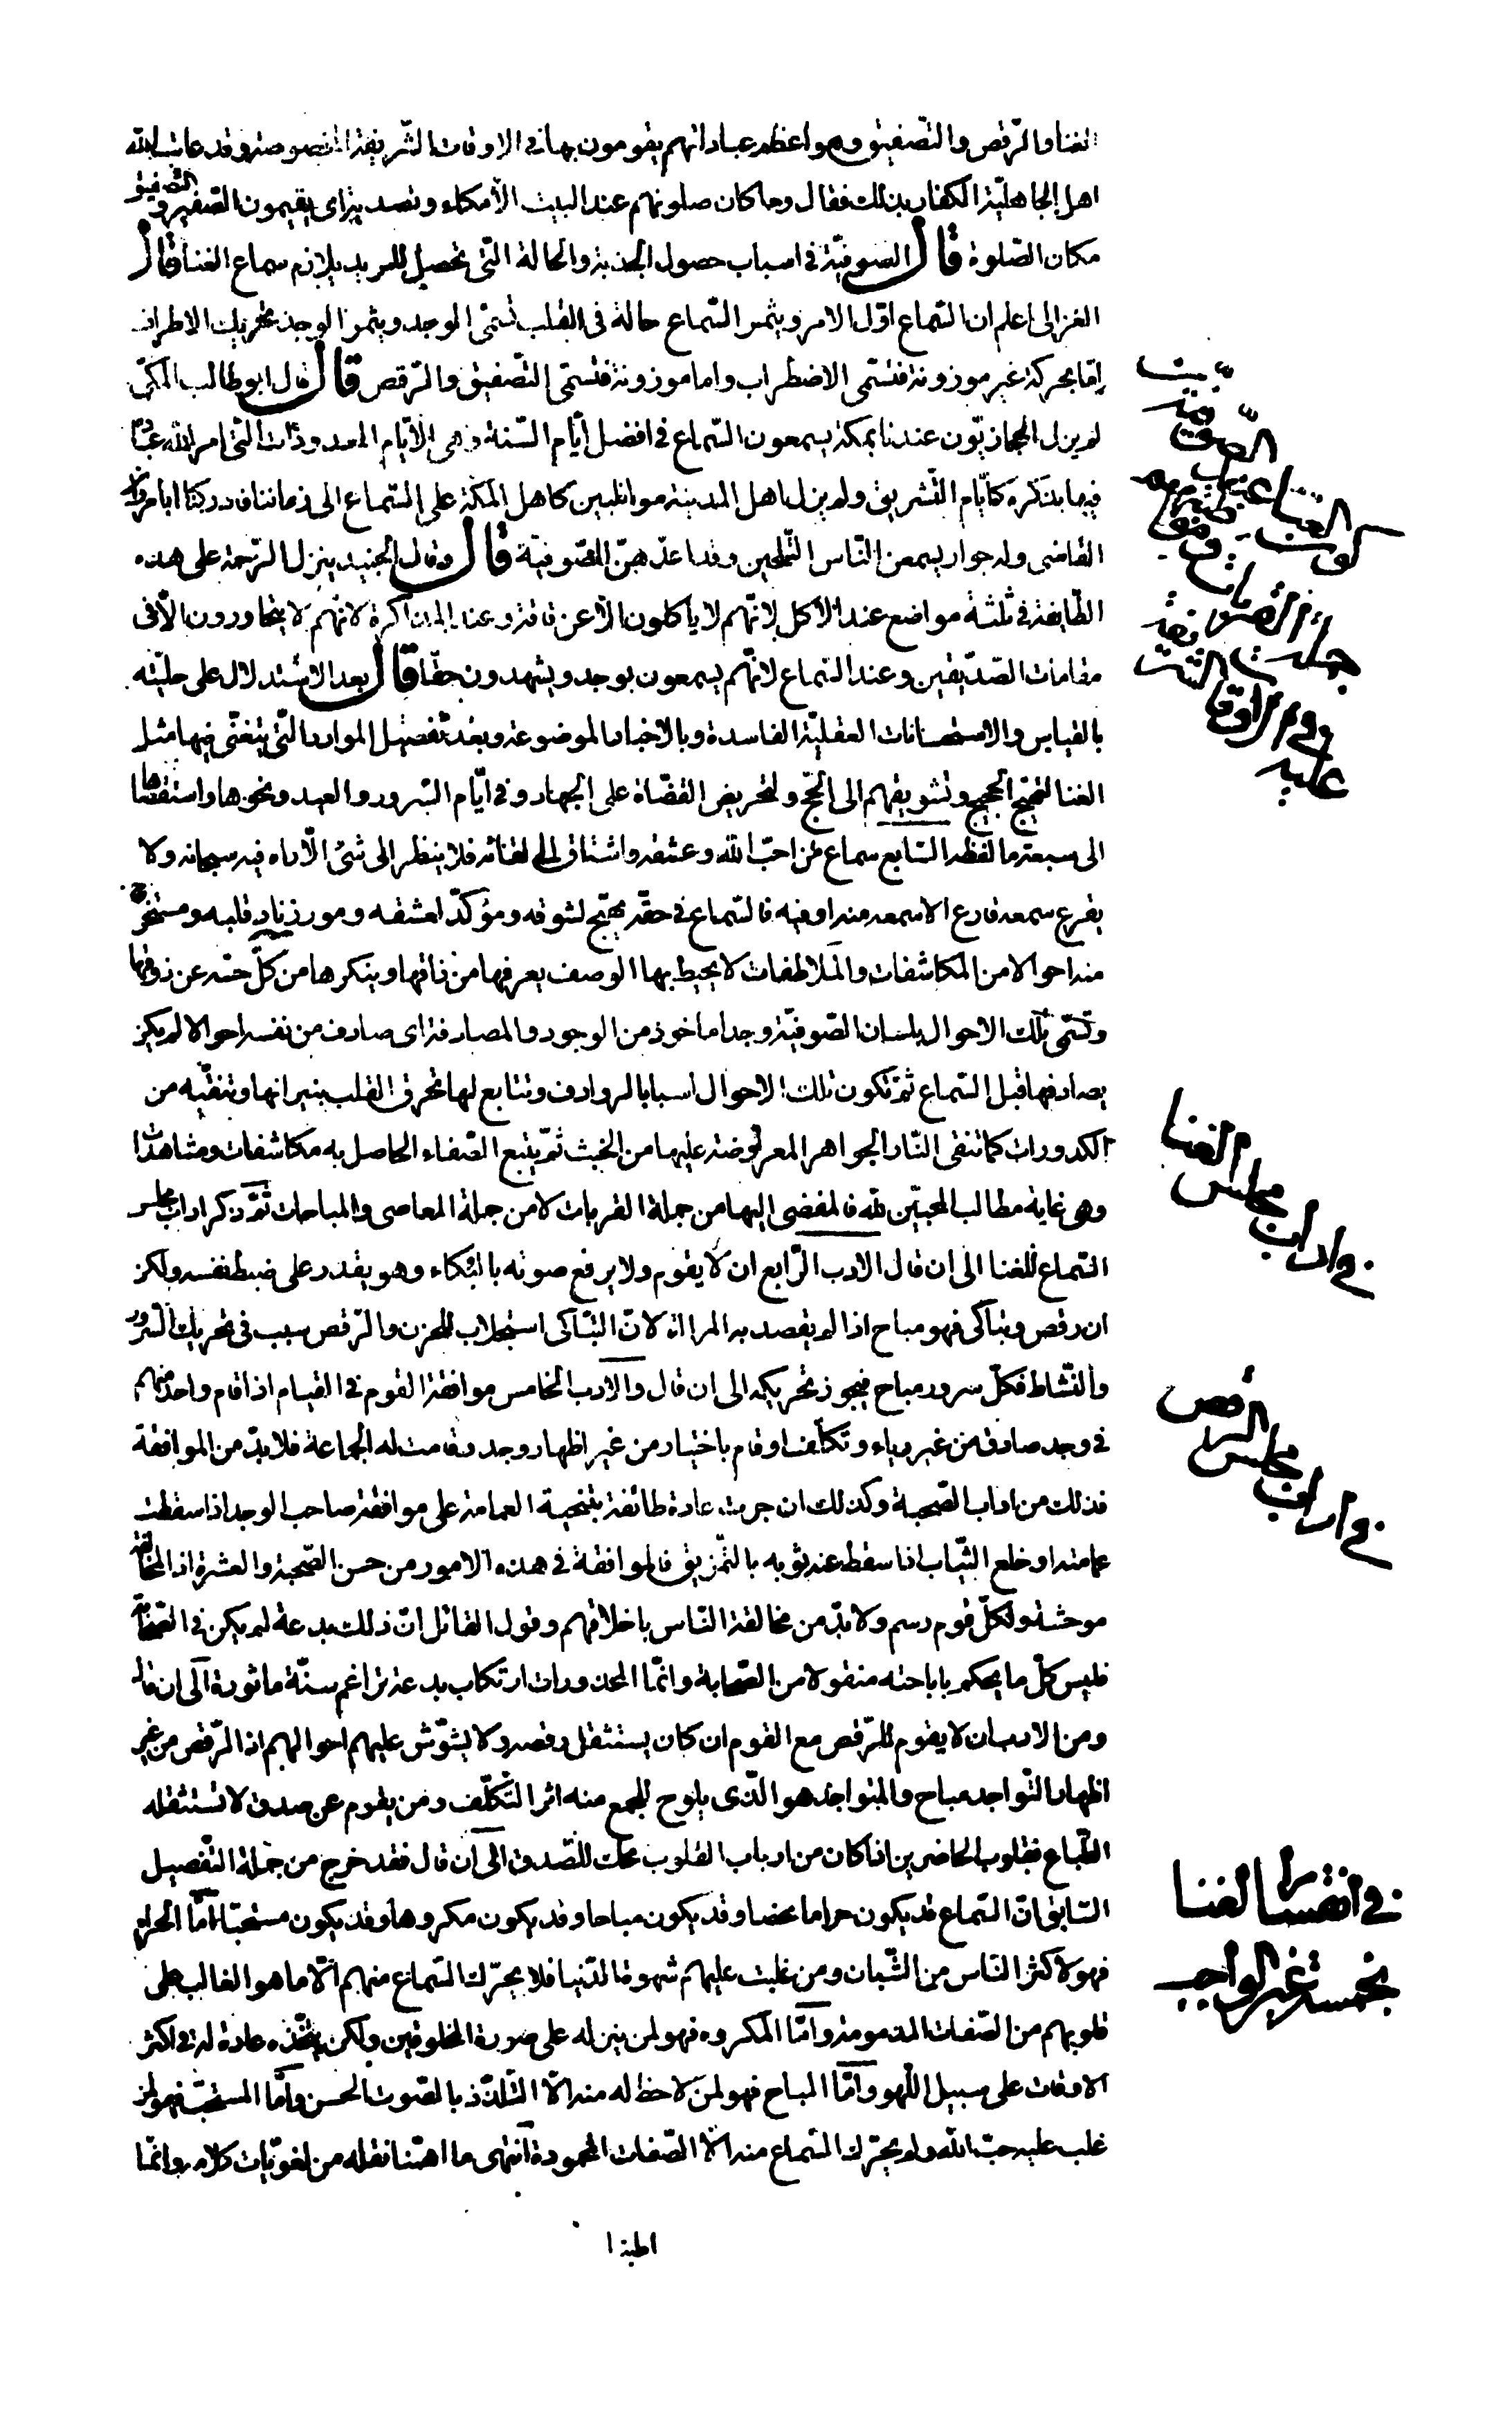 الغنا والرّقص والتّصفيق وهو اعظم عباداتهم يقومون بها فى الاوقات الشّريفة المخصوصة وقد عاتب الله
اهل الجاهليّة الكفار بذلك فقال وما كان صلوتهم عند البيت الّا مكاء وتصدية اى يقيمون الصّفير والتّصفيق
مكان الصّلوة قال الصوفيّة فى اسباب حصول الجذبة والحالة الّتى تحصل للمريد يلازم سماع الغنا قال
الغزالى اعلم ان السّماع اوّل الامر ويثمر السّماع حالة فى القلب تسمّى الوجد ويثمر الوجد تحريك الاطراف
امّا بحركة غير موزونة فتسمّى الاضطراب واما موزونة فتسمّى التّصفيق والرّقص قال قال ابو طالب المكّى
لم يزل الحجازيّون عندنا بمكة يسمعون السّماع فى افضل أيّام السّنة وهى الايّام المعدودات الّتى امر الله عباده
فيها بذكره كايّام التّشريق ولم يزل اهل المدينة مواظبين كاهل المكّة على السّماع الى زماننا فادركنا ابا مروان
القاضى وله جوار يسمعن النّاس التّلحين وقد اعدّهنّ للصّوفيّة قال وقال الجنيد ينزل الرّحمة على هذه
الطّايفة فى ثلثة مواضع عند الاكل لانّهم لا ياكلون الّا عن فاقة وعند المذاكرة لانّهم لا يتحاورون الّا فى
مقامات الصّدّيقين وعند السّماع لانّهم يسمعون بوجد ويشهدون حقّا قال بعد الاستدلال على حلّيّته
بالقياس والاستحسانات العقليّة الفاسدة وبالاخبار الموضوعة وبعد تفصيل الموارد الّتى يتغنّى فيها مثل
الغنا لتهيّج الحجيج وتشويقهم الى الحجّ ولتحريض الغزاة على الجهاد وفى ايّام السّرور والعيد ونحوها واستقصاها
الى سبعة ما لفظه السّابع سماع من احبّ الله وعشقه واشتاق الى لقائه فلا ينظر الى شئ الّا راه فيه سبحانه ولا
يقرع سمعه قارع الا سمعه منه او فيه فالسّماع فى حقّه مهيّج لشوقه ومؤكّد لعشقه ومور زناد قلبه ومستخرج
منه احوالا من المكاشفات والملاطفات لا يحيط بها الوصف يعرفها من ذاقها وينكرها من كلّ حسّه عن ذوقها
وتسمّى تلك الاحوال بلسان الصّوفيّة وجدا ماخوذ من الوجود والمصادفة اى صادف من نفسه احوالا لم يكن
يصادفها قبل السّماع ثمّ تكون تلك الاحوال اسبابا لروادف وتتابع لها تحرق القلب بنيرانها وتنقّيه من
الكدورات كما تنقى النّار الجواهر المعروضة عليها من الخبث ثمّ يتبع الصّفاء الحاصل به مكاشفات ومشاهدات
وهى غاية مطالب المحبّين لله فالمفضى اليها من جملة القربات لا من جملة المعاصى والمباحات ثمّ ذكر اداب مجلس
السّماع للغنا الى ان قال الادب الرّابع ان لا يقوم ولا يرفع صوته بالبكاء وهو يقدر على ضبط نفسه ولكن
ان رقص وتباكى فهو مباح اذا لم يقصد به المراااة لانّ التّباكى استجلاب للحزن والرّقص سبب فى تحريك السّرور
والنّشاط فكلّ سرور مباح فيجوز تحريكه الى ان قال والادب الخامس موافقة القوم فى القيام اذا قام واحد منهم
فى وجد صادق من غير رياء وتكلّف او قام باختيار من غير اظهار وجد وقامت له الجماعة فلا بدّ من الموافقة
فذلك من اداب الصّحبة وكذلك ان جرت عادة طائفة بتنحية العمامة على موافقة صاحب الوجد اذا سقطت
عمامته او خلع الثّياب اذا سقط عنه ثوبه بالتّمزيق فالموافقة فى هذه الامور من حسن الصّحبة والعشرة اذ المخالفة
موحشة ولكلّ قوم رسم ولا بدّ من مخالقة النّاس باخلاقهم وقول القائل انّ ذلك بدعة لم يكن فى الصّحابة
فليس كلّ ما يحكم باباحته منقولا من الصّحابة وانّما المحذورات ارتكاب بدعة تراغم سنّة ماثورة الى ان قال
ومن الادب ان لا يقوم للرّقص مع القوم ان كان يستثقل رقصه ولا يشوّش عليهم احوالهم اذ الرّقص من غير
اظهار التّواجد مباح والمتواجد هو الّذى يلوح للجمع منه اثر التّكلّف ومن يقوم عن صدق لا تستثقله
الطّباع فقلوب الحاضرين اذا كان من ارباب القلوب محك للصّدق الى ان قال فقد خرج من جملة التّفصيل
السّابق انّ السّماع قد يكون حراما محضا وقد يكون مباحا وقد يكون مكروها وقد يكون مستحبّا امّا الحرام
فهو لاكثر النّاس من الشّبان ومن غلبت عليهم شهوة الدّنيا فلا يحرّك السّماع منهم الّا ما هو الغالب على
قلوبهم من الصّفات المذمومة وامّا المكروه فهو لمن ينزله على صورة المخلوقين ولكن يتّخذه عادة له فى اكثر
الاوقات على سبيل اللّهو وامّا المباح فهو لمن لا حظ له منه الّا التّلذّذ بالصّوت الحسن وامّا المستحبّ فهو لمن
غلب عليه حبّ الله ولم يحرّك السّماع منه الّا الصّفات المحمودة انتهى ما اهمّنا نقله من لغويّات كلامه وانّما
اطبنا
فى اداب مجلس الغنا
فى اداب مجلس الرقص
فى انقسام الغنا
بخمسة غير الواجب